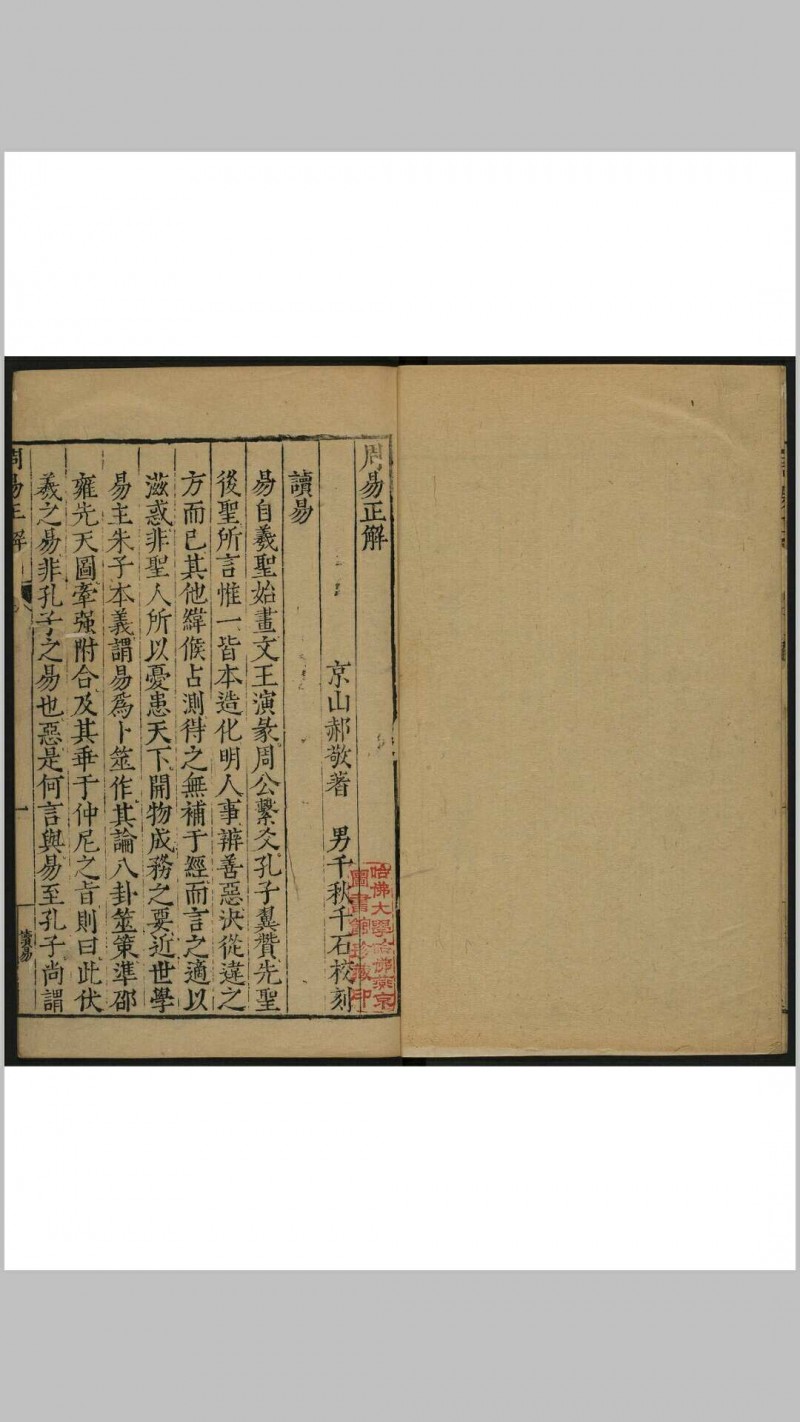 周易正解
京山郝敬著　男千秋千石校刻
讀易
易自羲聖始畫文王演彖周公繫爻孔子翼贊先聖
後聖所言惟一皆本造化明人事辨善惡決從違之
方而已其他緯候占測待之無補于經而言之適以
滋惑非聖人所以憂患天下開物成務之要近世學
易主朱子本義謂易為卜筮作其論八卦筮策準邵
雍先天圖牽强附合及其乖于仲尼之旨則曰此伏
羲之易非孔子之易也惡是何言與易至孔子尚謂
周易正解
讀易
一
哈佛大學哈佛燕京
圖書館珍藏印